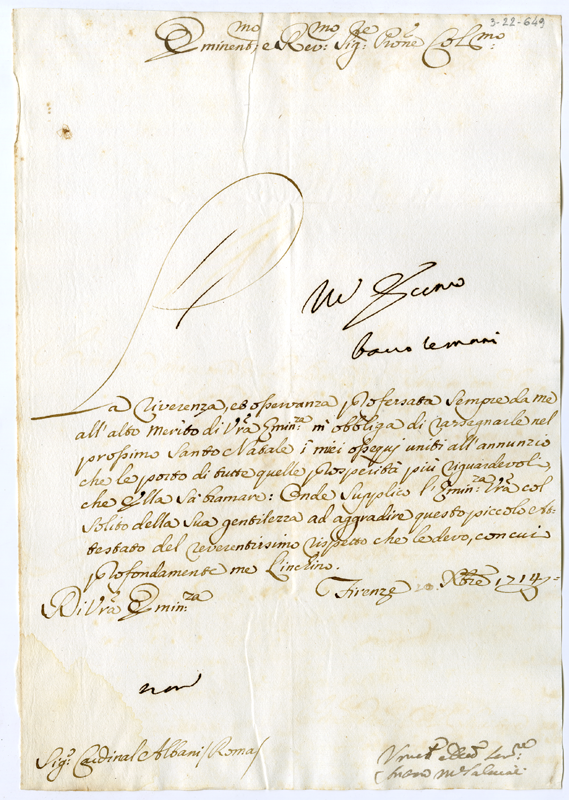 3-22-649
Eminent:mo e Rev:mo Sig:re Pron̄e Col:mo
Mi
bacio le mani
La Riverenza, ed osservanza professata sempre da me
all'alto merito di Vr̄a Emin:za m'obbliga di rassegnarle nel
prossimo Santo Natale i miei ossequj uniti all'annunzio
che le porto di tutte quelle prosperità più riguardevoli,
che Ella sà bramare: Onde supplico l'Emin:za Vr̄a col
solito della sua gentilezza ad aggradire questo piccolo at-
testato del reverentissimo rispetto che le devo, con cui
profondamente me L'inchino.
Di Vr̄a Emin:za Firenze Xbre 1714
Sig:r Cardinal Albani / Roma /